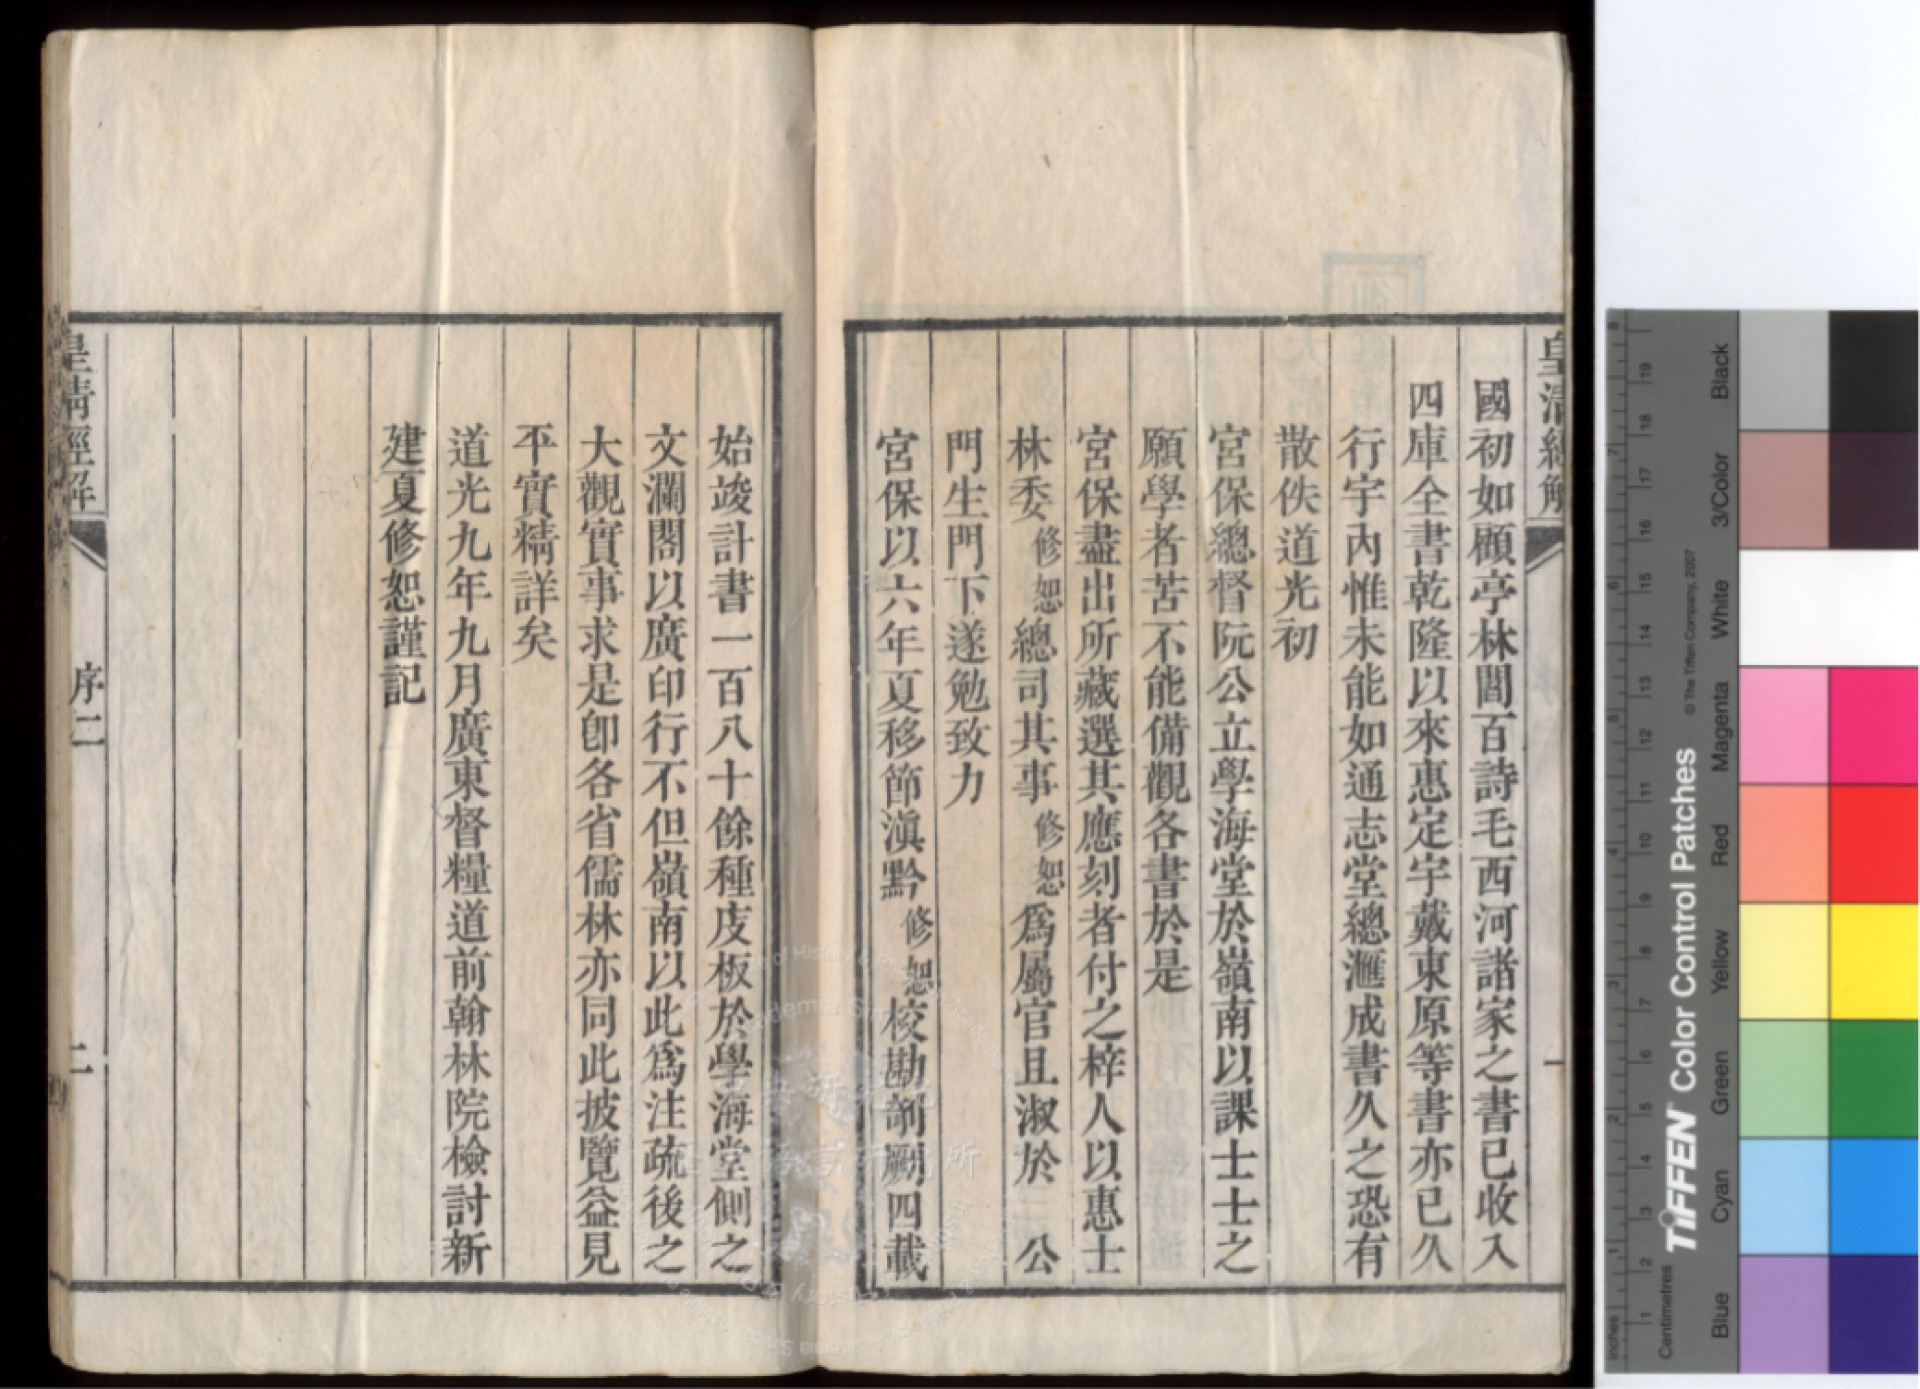 皇清經解
一
國初如顧亭林閻百詩毛西河諸家之書已收入
四庫全書乾隆以來惠定宇戴東原等書亦已久
行宇內惟未能如通志堂總滙成書久之恐有
散佚道光初
宮保總督阮公立學海堂於嶺南以課士士之
願學者苦不能備觀各書於是
宮保盡出所藏選其應刻者付之梓人以惠士
林委修恕總司其事修恕為屬官且淑於公
門生門下遂勉致力
宮保以六年夏移節滇黔修恕校勘剞劂四載
始竣計書一百八十餘種庋板於學海堂側之
文瀾閣以廣印行不但嶺南以此為注疏後之
大觀實事求是即各省儒林亦同此披覽益見
平實精詳矣
道光九年九月廣東督糧道前翰林院檢討新
建夏修恕謹記
皇清經解
序二
二
Inches
Centimetres
TIFFEN Color Control Patches
© The Tiffen Company, 2007
Blue
Cyan
Green
Yellow
Red
Magenta
White
3/Color
Black